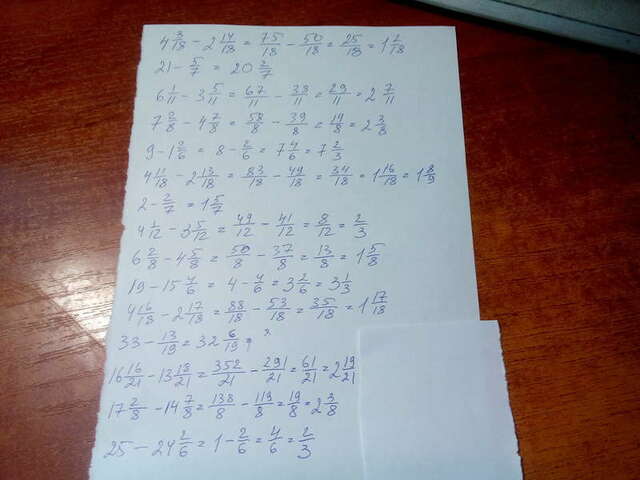 4 3/18 - 2 14/18 = 75/18 - 50/18 = 25/18 = 1 7/18
21 - 5/7 = 20 2/7
6 1/11 - 3 5/11 = 67/11 - 38/11 = 29/11 = 2 7/11
7 2/8 - 4 7/8 = 58/8 - 39/8 = 19/8 = 2 3/8
9 - 1 2/6 = 8 - 2/6 = 7 4/6 = 7 2/3
4 11/18 - 2 13/18 = 83/18 - 49/18 = 34/18 = 1 16/18 = 1 8/9
2 - 2/7 = 1 5/7
4 1/12 - 3 5/12 = 49/12 - 41/12 = 8/12 = 2/3
6 2/8 - 4 5/8 = 50/8 - 37/8 = 13/8 = 1 5/8
19 - 15 4/6 = 4 - 4/6 = 3 2/6 = 3 1/3
4 16/18 - 2 17/18 = 88/18 - 53/18 = 35/18 = 1 17/18
33 - 13/19 = 32 6/19
16 16/21 - 13 18/21 = 352/21 - 291/21 = 61/21 = 2 19/21
17 2/8 - 14 7/8 = 138/8 - 119/8 = 19/8 = 2 3/8
25 - 24 2/6 = 1 - 2/6 = 4/6 = 2/3